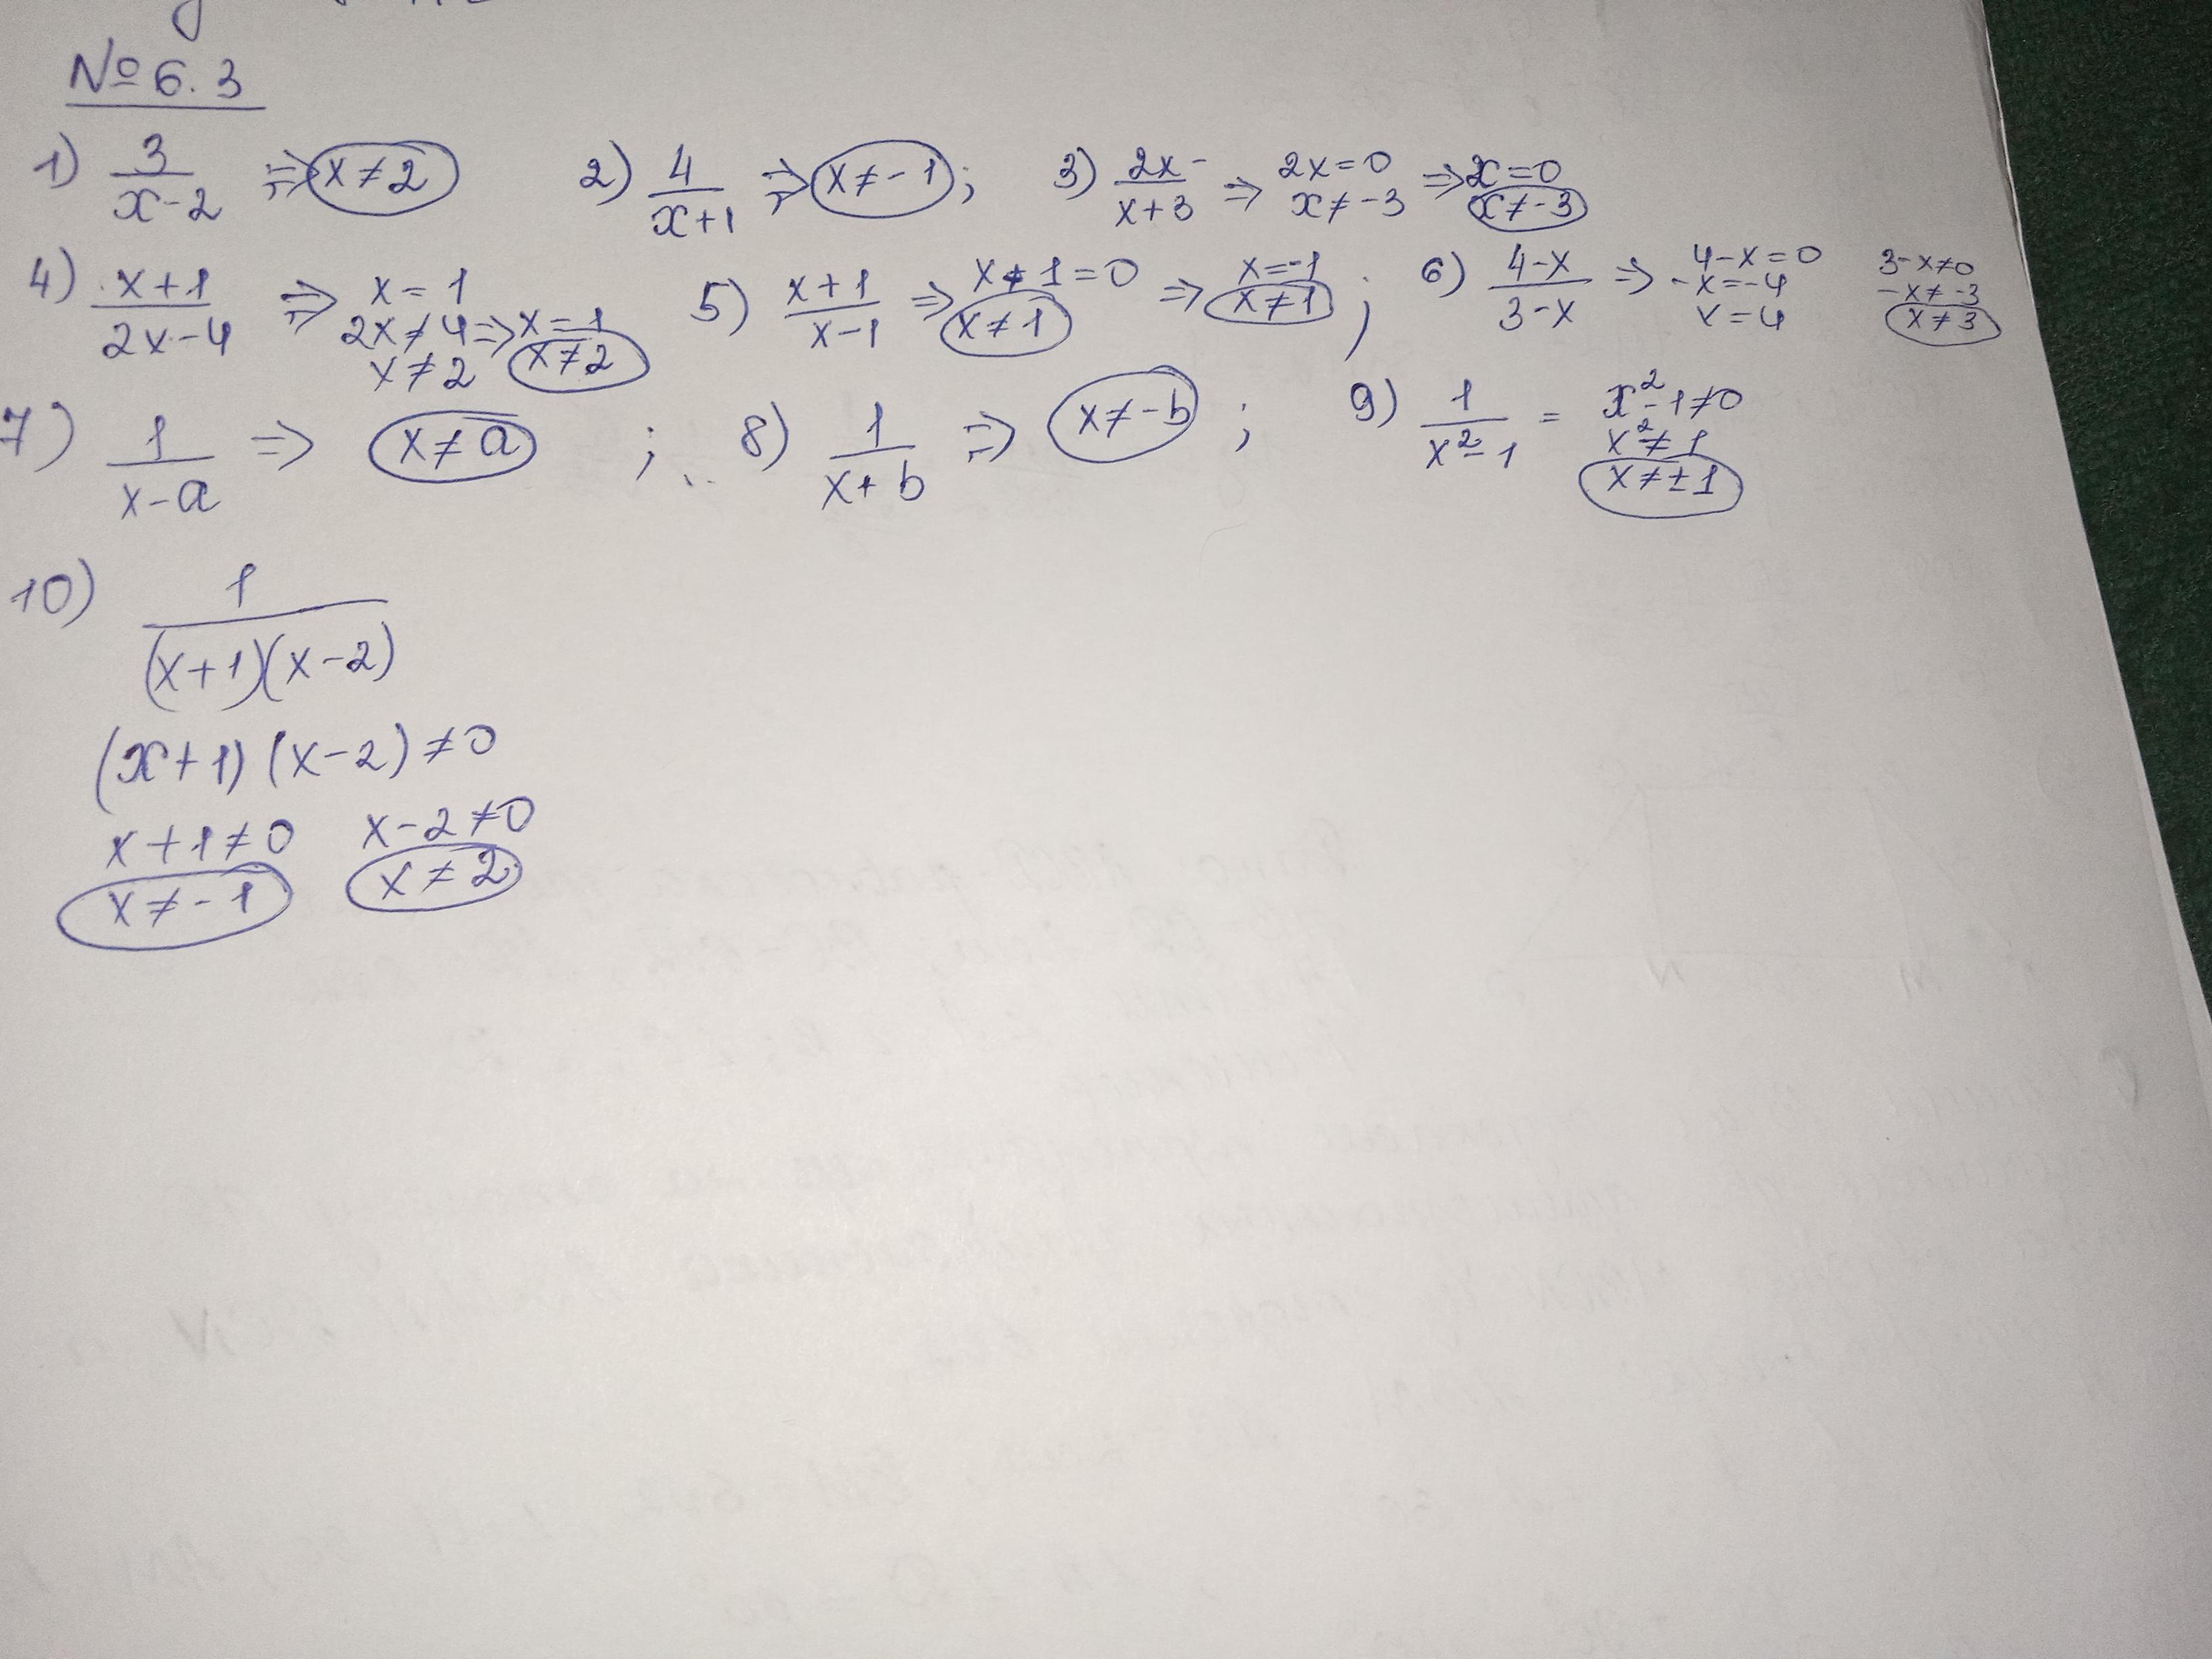 № 6.3
1) 3/(x-2) => x≠2   2) 4/(x+1) => x≠-1;   3) 2x/(x+3) => 2x=0 x≠-3 => x=0 x≠-3
4) x+1/(2x-4) => x=1 2x≠4 x≠2 => x=1 x≠2   5) x+1/(x-1) => x+1=0 x≠1 => x=-1 x≠1;   6) 4-x/(3-x) => 4-x=0 -x=-4 x=4   3-x≠0 -x≠-3 x≠3
7) 1/(x-a) => x≠a;   8) 1/(x+b) => x≠-b;   9) 1/(x²-1) = x²-1≠0 x²≠1 x≠±1
10) 1/((x+1)(x-2))
(x+1)(x-2)≠0
x+1≠0   x-2≠0
x≠-1   x≠2